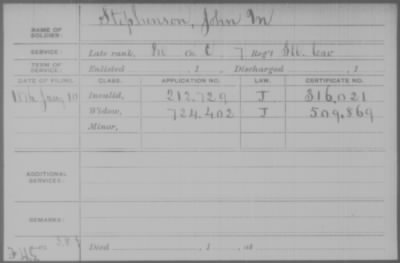 NAME OF SOLDIER: Stephenson, John M
SERVICE: Late rank, Co. C, 7 Reg't Ill. Cav
TERM OF SERVICE: Enlisted , 1 , Discharged , 1
DATE OF FILING. CLASS. APPLICATION NO. LAW. CERTIFICATE NO.
Invalid, 212.729 J 316.021
Widow, 724.402 J 509.869
Minor,
ADDITIONAL SERVICES:
REMARKS:
Died , 1 , at